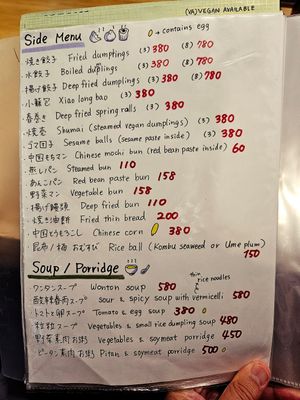 (VA)VEGAN AVAILABLE
Side Menu → contains egg
・焼き餃子 Fried dumplings (3) 380 (8) 780
・水餃子 Boiled dumplings (3) 380 (8) 780
・揚げ餃子 Deep fried dumplings (3) 380 (8) 780
・小籠包 Xiao long bao (3) 380
・春巻き Deep fried spring rolls (3) 380
・焼売 Shumai (steamed vegan dumplings) (3) 380
・ゴマ団子 Sesame balls (sesame paste inside) (3) 380
・中国もちマン Chinese mochi bun (red bean paste inside) 60
・蒸しパン Steamed bun 110
・あんこパン Red bean paste bun 158
・野菜マン Vegetable bun 158
・揚げ饅頭 Deep fried bun 110
・焼き油餅 Fried thin bread 200
・中国とうもろこし Chinese corn 380
・昆布/梅 おむすび Rice ball (Kombu seaweed or Ume plum) 150
Soup / Porridge
thin rice noodles
・ワンタンスープ Wonton soup 580
・酸辣春雨スープ Sour & spicy soup with vermicelli 580
・トマトと卵スープ Tomato & egg soup 380
・粒粒スープ Vegetables & small rice dumpling soup 480
・野菜素肉お粥 Vegetables & soymeat porridge 450
・ピータン素肉お粥 Pitan & soymeat porridge 500